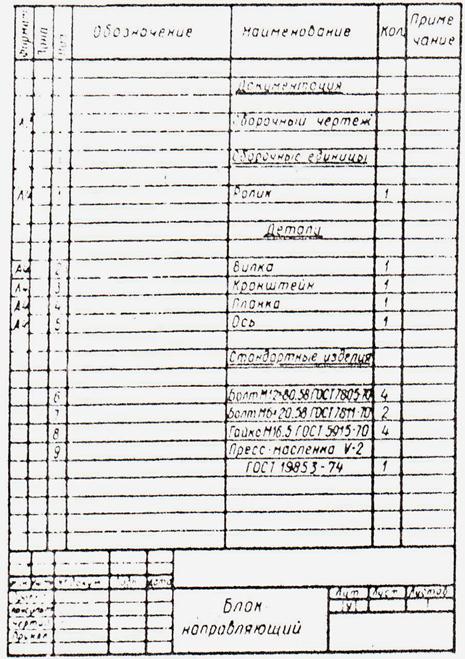 Формат Зона Поз. Обозначение Наименование Кол. Приме
чание
Документация
Сборочный чертеж
Сборочные единицы
А4 1 Ролик 1
Детали
А4 2 Вилка 1
А4 3 Кронштейн 1
А4 4 Планка 1
А4 5 Ось 1
Стандартные изделия
6 Болт М12×80.58 ГОСТ 7805-70 4
7 Болт М6×20.58 ГОСТ 7811-70 2
8 Гайка М16.5 ГОСТ 5915-70 4
9 Пресс-масленка V-2
ГОСТ 19853-74 1
Лит. Лист Листов
Блок
направляющий